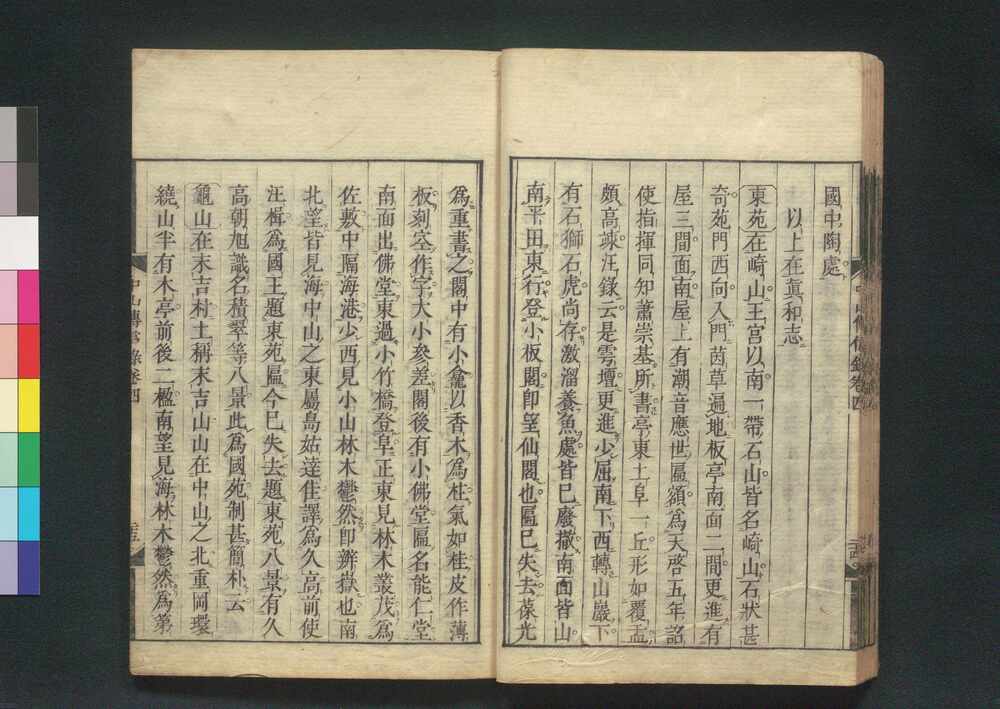 國中陶處
以上在眞和志
東苑在崎山王宮以南一帶石山皆名崎山石狀甚
奇苑門西向入門茵草遍地板亭南面二間更進有
屋三間面南屋上有潮音應世匾額爲天啓五年詔
使指揮同知蕭崇基所書亭東土阜一丘形如覆盂
頗高竦汪錄云是雩壇更進少屈南下西轉山巖下
有石獅石虎尚存激溜養魚處皆已廢撤南面皆山
南平田東行登小板閣卽望仙閣也匾已失去葆光
爲重書之閣中有小龕以香木爲柱氣如桂皮作薄
板刻空作字大小叅差閣後有小佛堂匾名能仁堂
南面出佛堂東過小竹橋登阜正東見林木叢茂爲
佐敷中隔海港少西見小山林木鬱然卽辨嶽也南
北望皆見海中山之東屬島姑達佳譯爲久高前使
汪楫爲國王題東苑匾今已失去題東苑八景有久
高朝旭識名積翠等八景此爲國苑制甚簡朴云
龜山在末吉村土稱末吉山山在中山之北重岡環
繞山半有木亭前後二楹南望見海林木鬱然爲第
中山傳信錄卷四